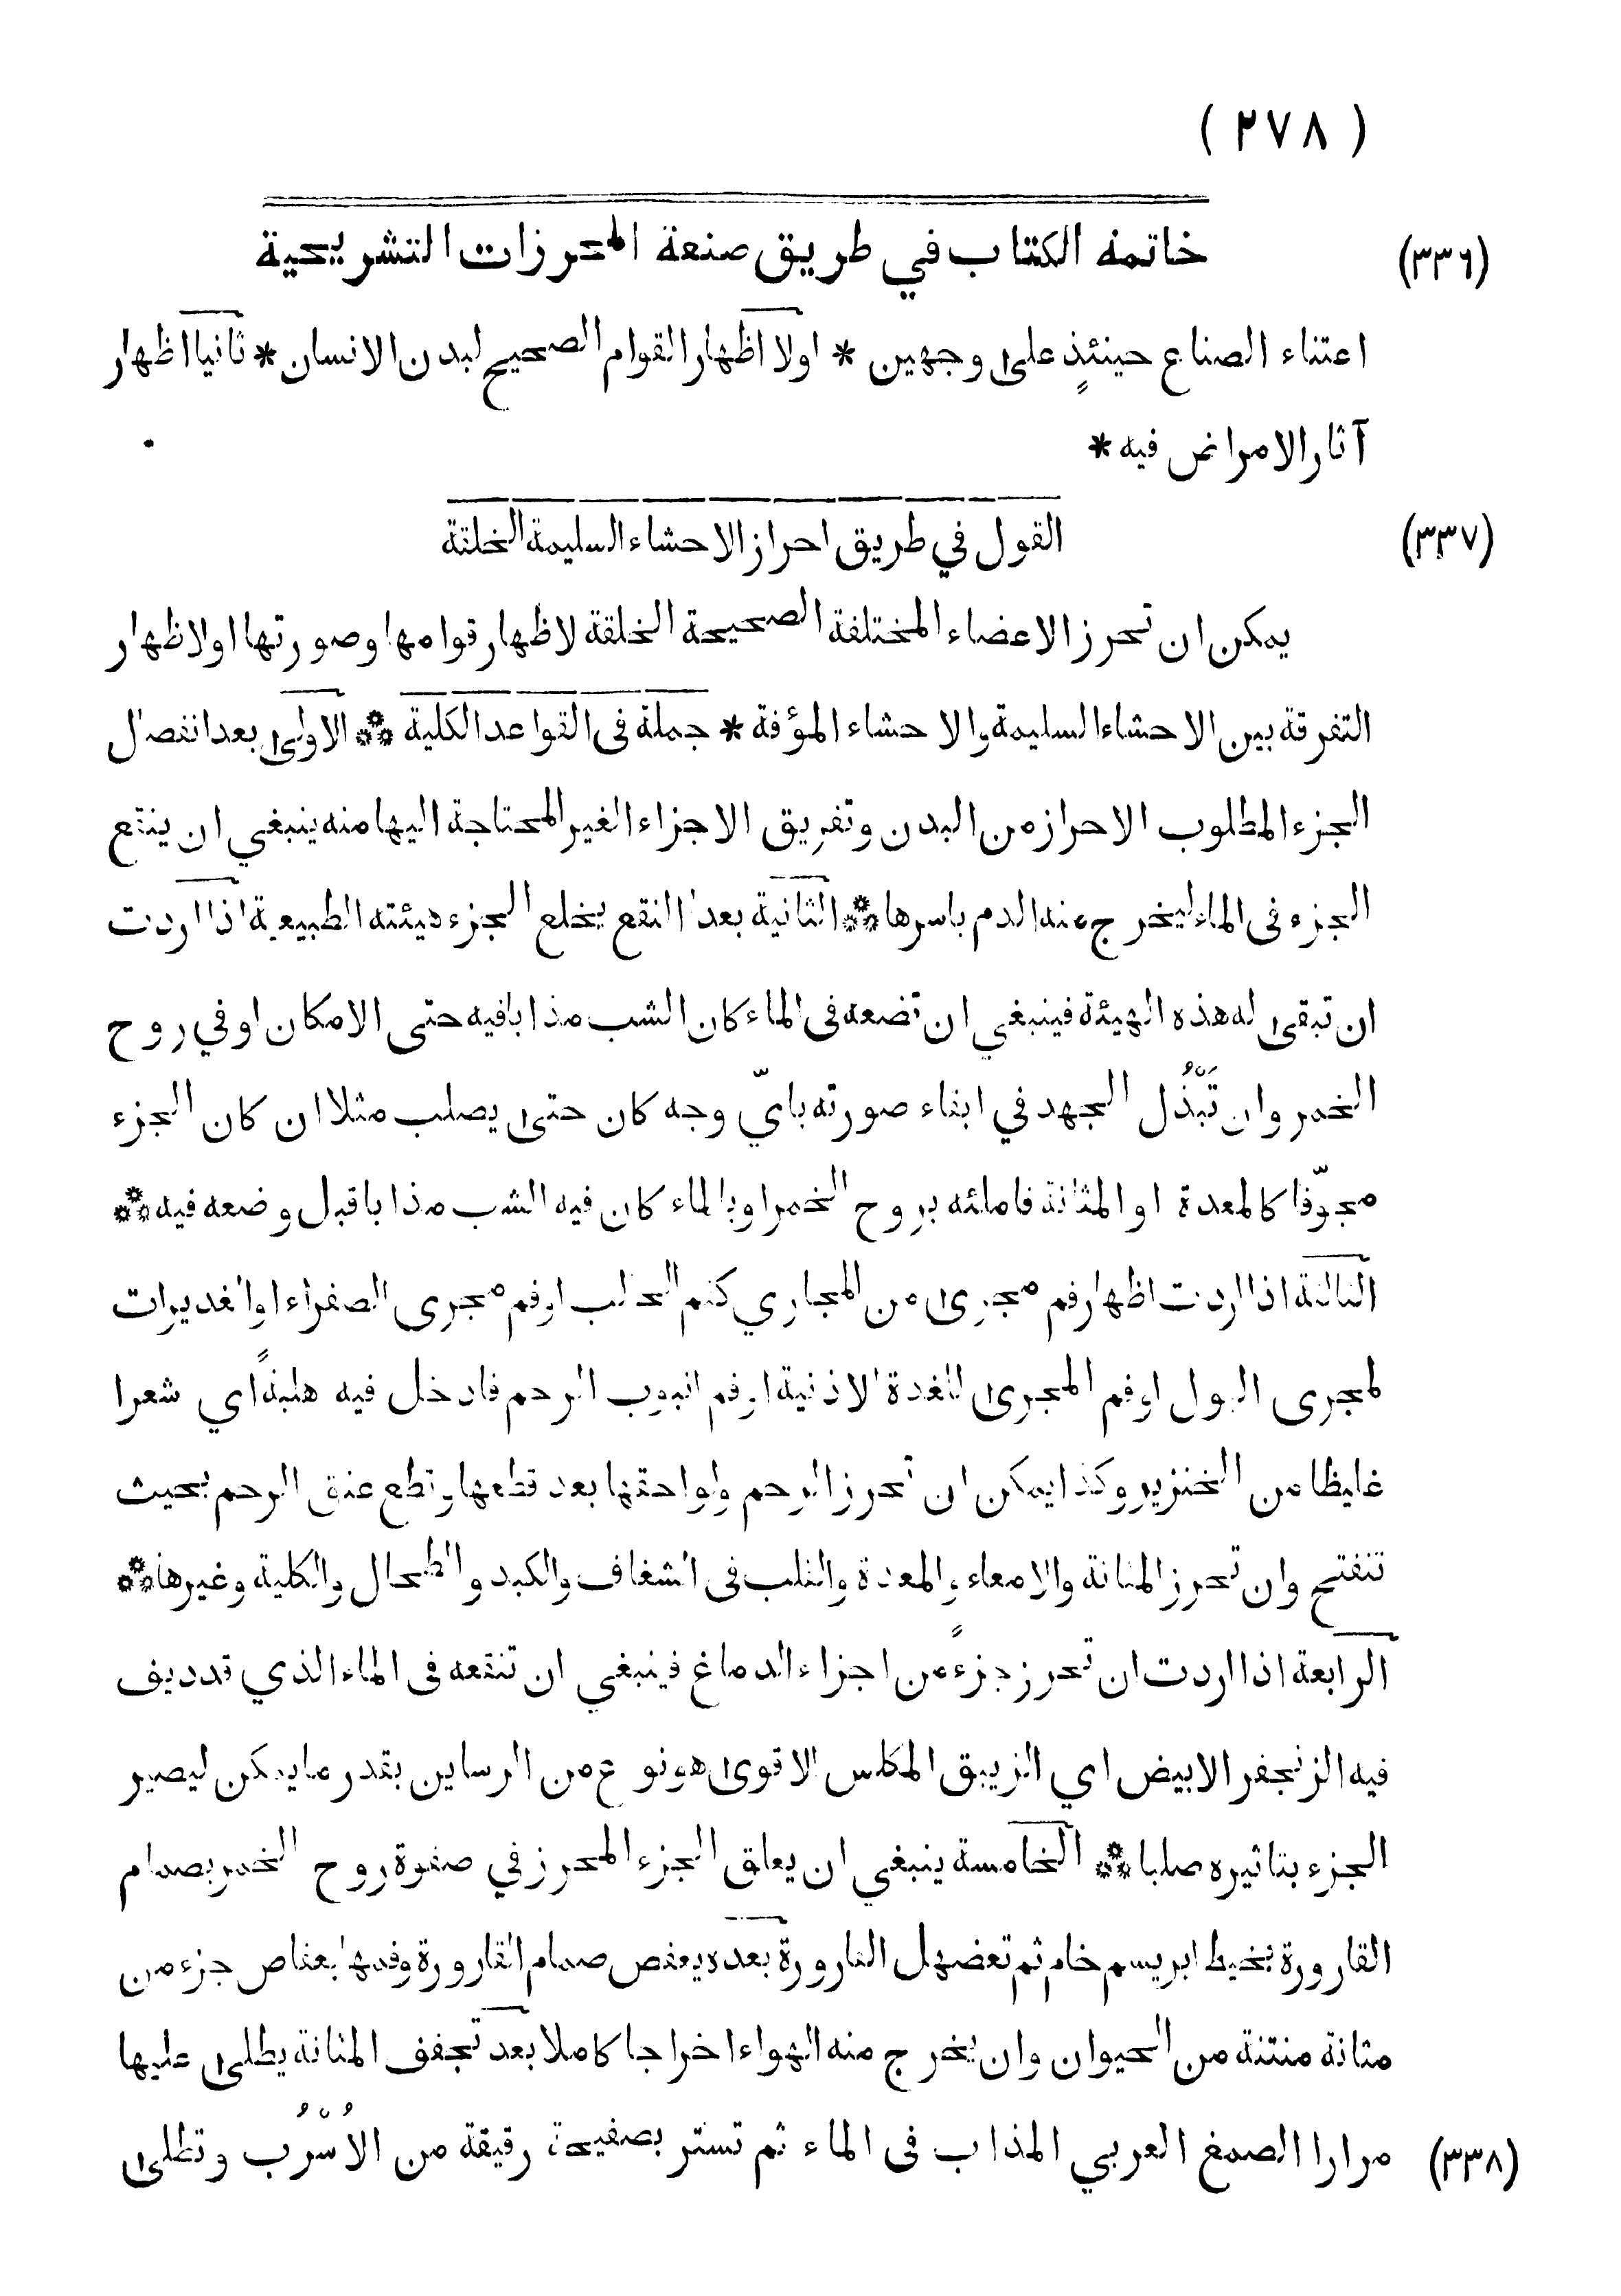 ( ٢٧٨ )
(٣٣٦) خاتمة الكتاب في طريق صنعة المحرزات التشريحية
اعتناء الصناع حينئذٍ على وجهين * اولا اظهار القوام الصحيح لبدن الانسان * ثانيا اظهار
آثار الامراض فيه *
(٣٣٧) القول في طريق احراز الاحشاء السليمة الخلقة
يمكن ان تحرز الاعضاء المختلفة الصحيحة الخلقة لاظهار قوامها وصورتها اولاظهار
التفرقة بين الاحشاء السليمة والاحشاء المؤفة * جملة في القواعد الكلية ⁂ الاولى بعد انفصال
الجزء المطلوب الاحراز من البدن وتفريق الاجزاء الغير المحتاجة اليها منه ينبغي ان ينتقع
الجزء في الماء ليخرج منه الدم باسرها ⁂ الثانية بعد النقع يخلع الجزء هيئته الطبيعية اذا اردت
ان تبقى له هذه الهيئة فينبغي ان تضعه في الماء كان الشب مذابا فيه حتى الامكان او في روح
الخمر وان تَبْذُل الجهد في ابقاء صورته بايّ وجه كان حتى يصلب مثلا ان كان الجزء
مجوّفا كالمعدة او المثانة فاملئه بروح الخمر او بالماء كان فيه الشب مذابا قبل وضعه فيه ⁂
الثالثة اذا اردت اظهار فم مجرى من المجاري كفم الحالب او فم مجرى الصفراء او الغديرات
لمجرى البول او فم المجرى للغدة الاذنية او فم انبوب الرحم فادخل فيه هلبةً اي شعرا
غليظا من الخنزير وكذا يمكن ان تحرز الرحم ولواحقها بعد قطعها وتطع عنق الرحم بحيث
تنفتح وان تحرز المثانة والامعاء والمعدة والقلب في الشغاف والكبد والطحال والكلية وغيرها ⁂
الرابعة اذا اردت ان تحرز جزءً من اجزاء الدماغ فينبغي ان تنقعه في الماء الذي قد ديف
فيه الزنجفر الابيض اي الزيبق المكلس الاقوى هو نوع من الرساين بقدر ما يمكن ليصير
الجزء بتاثيره صلبا ⁂ الخامسة ينبغي ان يعلق الجزء المحرز في صفوة روح الخمر بصمام
القارورة بخيط ابريسم خام ثم تعضهل القارورة بعده يعفص صمام القارورة وفمها بعفاص جزء من
مثانة منتنة من الحيوان وان يخرج منه الهواء اخراجا كاملا بعد تجفف المثانة يطلى عليها
(٣٣٨) مرارا الصمغ العربي المذاب في الماء ثم تستر بصفيحة رقيقة من الاُسْرُب وتطلى